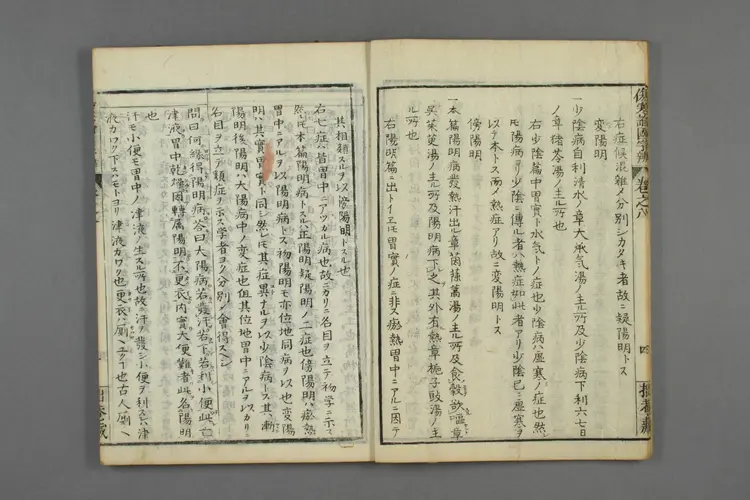 右症候混雜メ分別シカタキ者故ニ疑陽明トス
変陽明
一少陰病自利清水ノ章大承気湯ノ主ル所及少陰病下利六七日
ノ章猪苓湯ノ主ル所也
右少陰篇中胃實ト水気トノ症也少陰病ハ虚寒ノ症也然
陽病ヨリ少陰ニ傳ル者ハ熱症如此者アリ少陰已ニ虚寒ヲ
以テ本トス而ノ熱症アリ故ニ変陽明トス
傍陽明
一本篇陽明病發熱汗出ル章茵蔯蒿湯ノ主ル所及食穀欲嘔章
呉茱萸湯ノ主ル所及陽明病下之其外有熱章梔子豉湯ノ主
ル所也
右陽明篇ニ出トイエ𪜈胃實ノ症ニ非ス瘀熱胃中ニアルニ因テ
其相類スルヲ以傍陽明トスル也
右七症ハ皆胃中ニアツカル病也故ニカリニ名目ヲ立テ初学ニ示ス
然𪜈本篇陽明病トスルハ正陽明疑陽明ノ二症也傍陽明ハ瘀熱
胃中ニアルヲ以陽明病トス初陽明モ亦位地同病ヲ以也変陽
明ハ其實胃實ト同シ然𪜈其症異ナルヲ以少陰病トス其漸
陽明後陽明ハ大陽病中ノ変症也但其位地胃中ニアルヲ以カリニ
名目ヲ立テ類症ヲ示ス学者ヨク分別ノ會得スヘシ
問曰何縁得陽明病答曰大陽病若發汗若下若利小便此亡
津液胃中乾燥因轉属陽明不更衣内實大便難者此名陽明
也
汗モ小便モ胃中ノ津液ノ生スル所也故ニ汗ヲ發シ小便ヲ利スレハ津
液カワク下スハモトヨリ津液カワク也更衣ハ厠ヘユクフ也古人厠ヘ